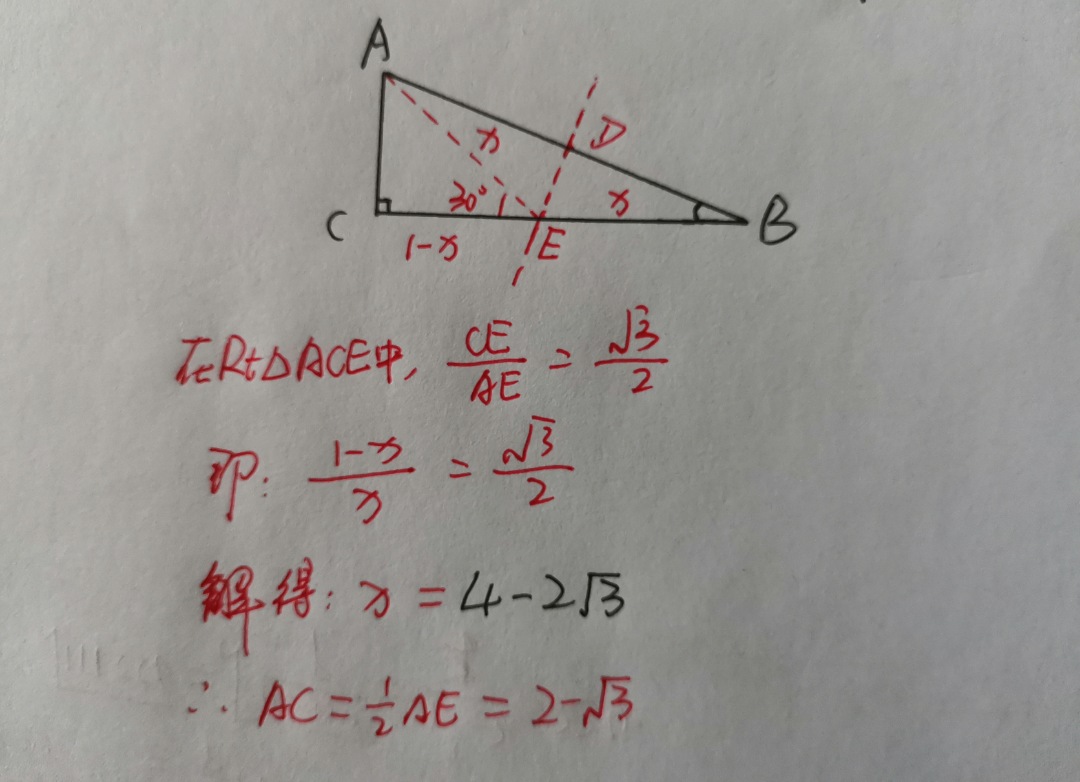 A
x
D
30°
x
C
B
1-x
E
在Rt△ACE中, CE/AE = √3/2
即: 1-x/x = √3/2
解得: x = 4-2√3
∴ AC = 1/2 AE = 2-√3